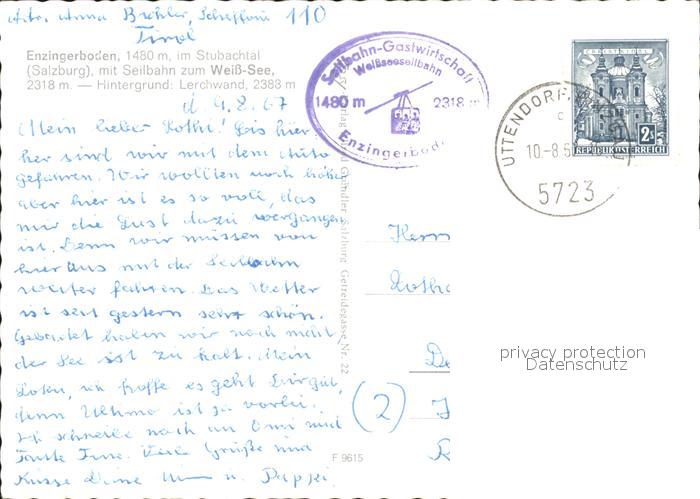 Adr. Anna Bichler, 110
Tirol
Enzingerboden, 1480 m, im Stubachtal
(Salzburg), mit Seilbahn zum Weiß-See,
2318 m. — Hintergrund: Lerchwand, 2388 m
d. 9.8.67
Mein lieber Lothi! Bis hier
her sind wir mit dem Auto
gefahren. Wir wollten noch höher
aber hier ist es so voll, das
mir die Lust dazu vergangen
ist. Denn wir müssen von
hier aus mit der Seilbahn
weiter fahren. Das Wetter
ist seit gestern sehr schön.
Gebadet haben wir noch nicht
der See ist zu kalt. Mein
ich hoffe es geht Dir gut,
denn ist ja vorbei.
Ich schreibe noch an Omi und
Tante Viele Grüße und
Küsse Deine u. Pappi
Seilbahn-Gastwirtschaft
Weißseeseilbahn
1480 m 2318 m
Enzingerboden
Gründler Salzburg Getreidegasse Nr. 22
UTTENDORF
c
10.-8.
5723
2S
REPUBLIK ÖSTERREICH
Herrn
De
(2)
F 9615
privacy protection
Datenschutz